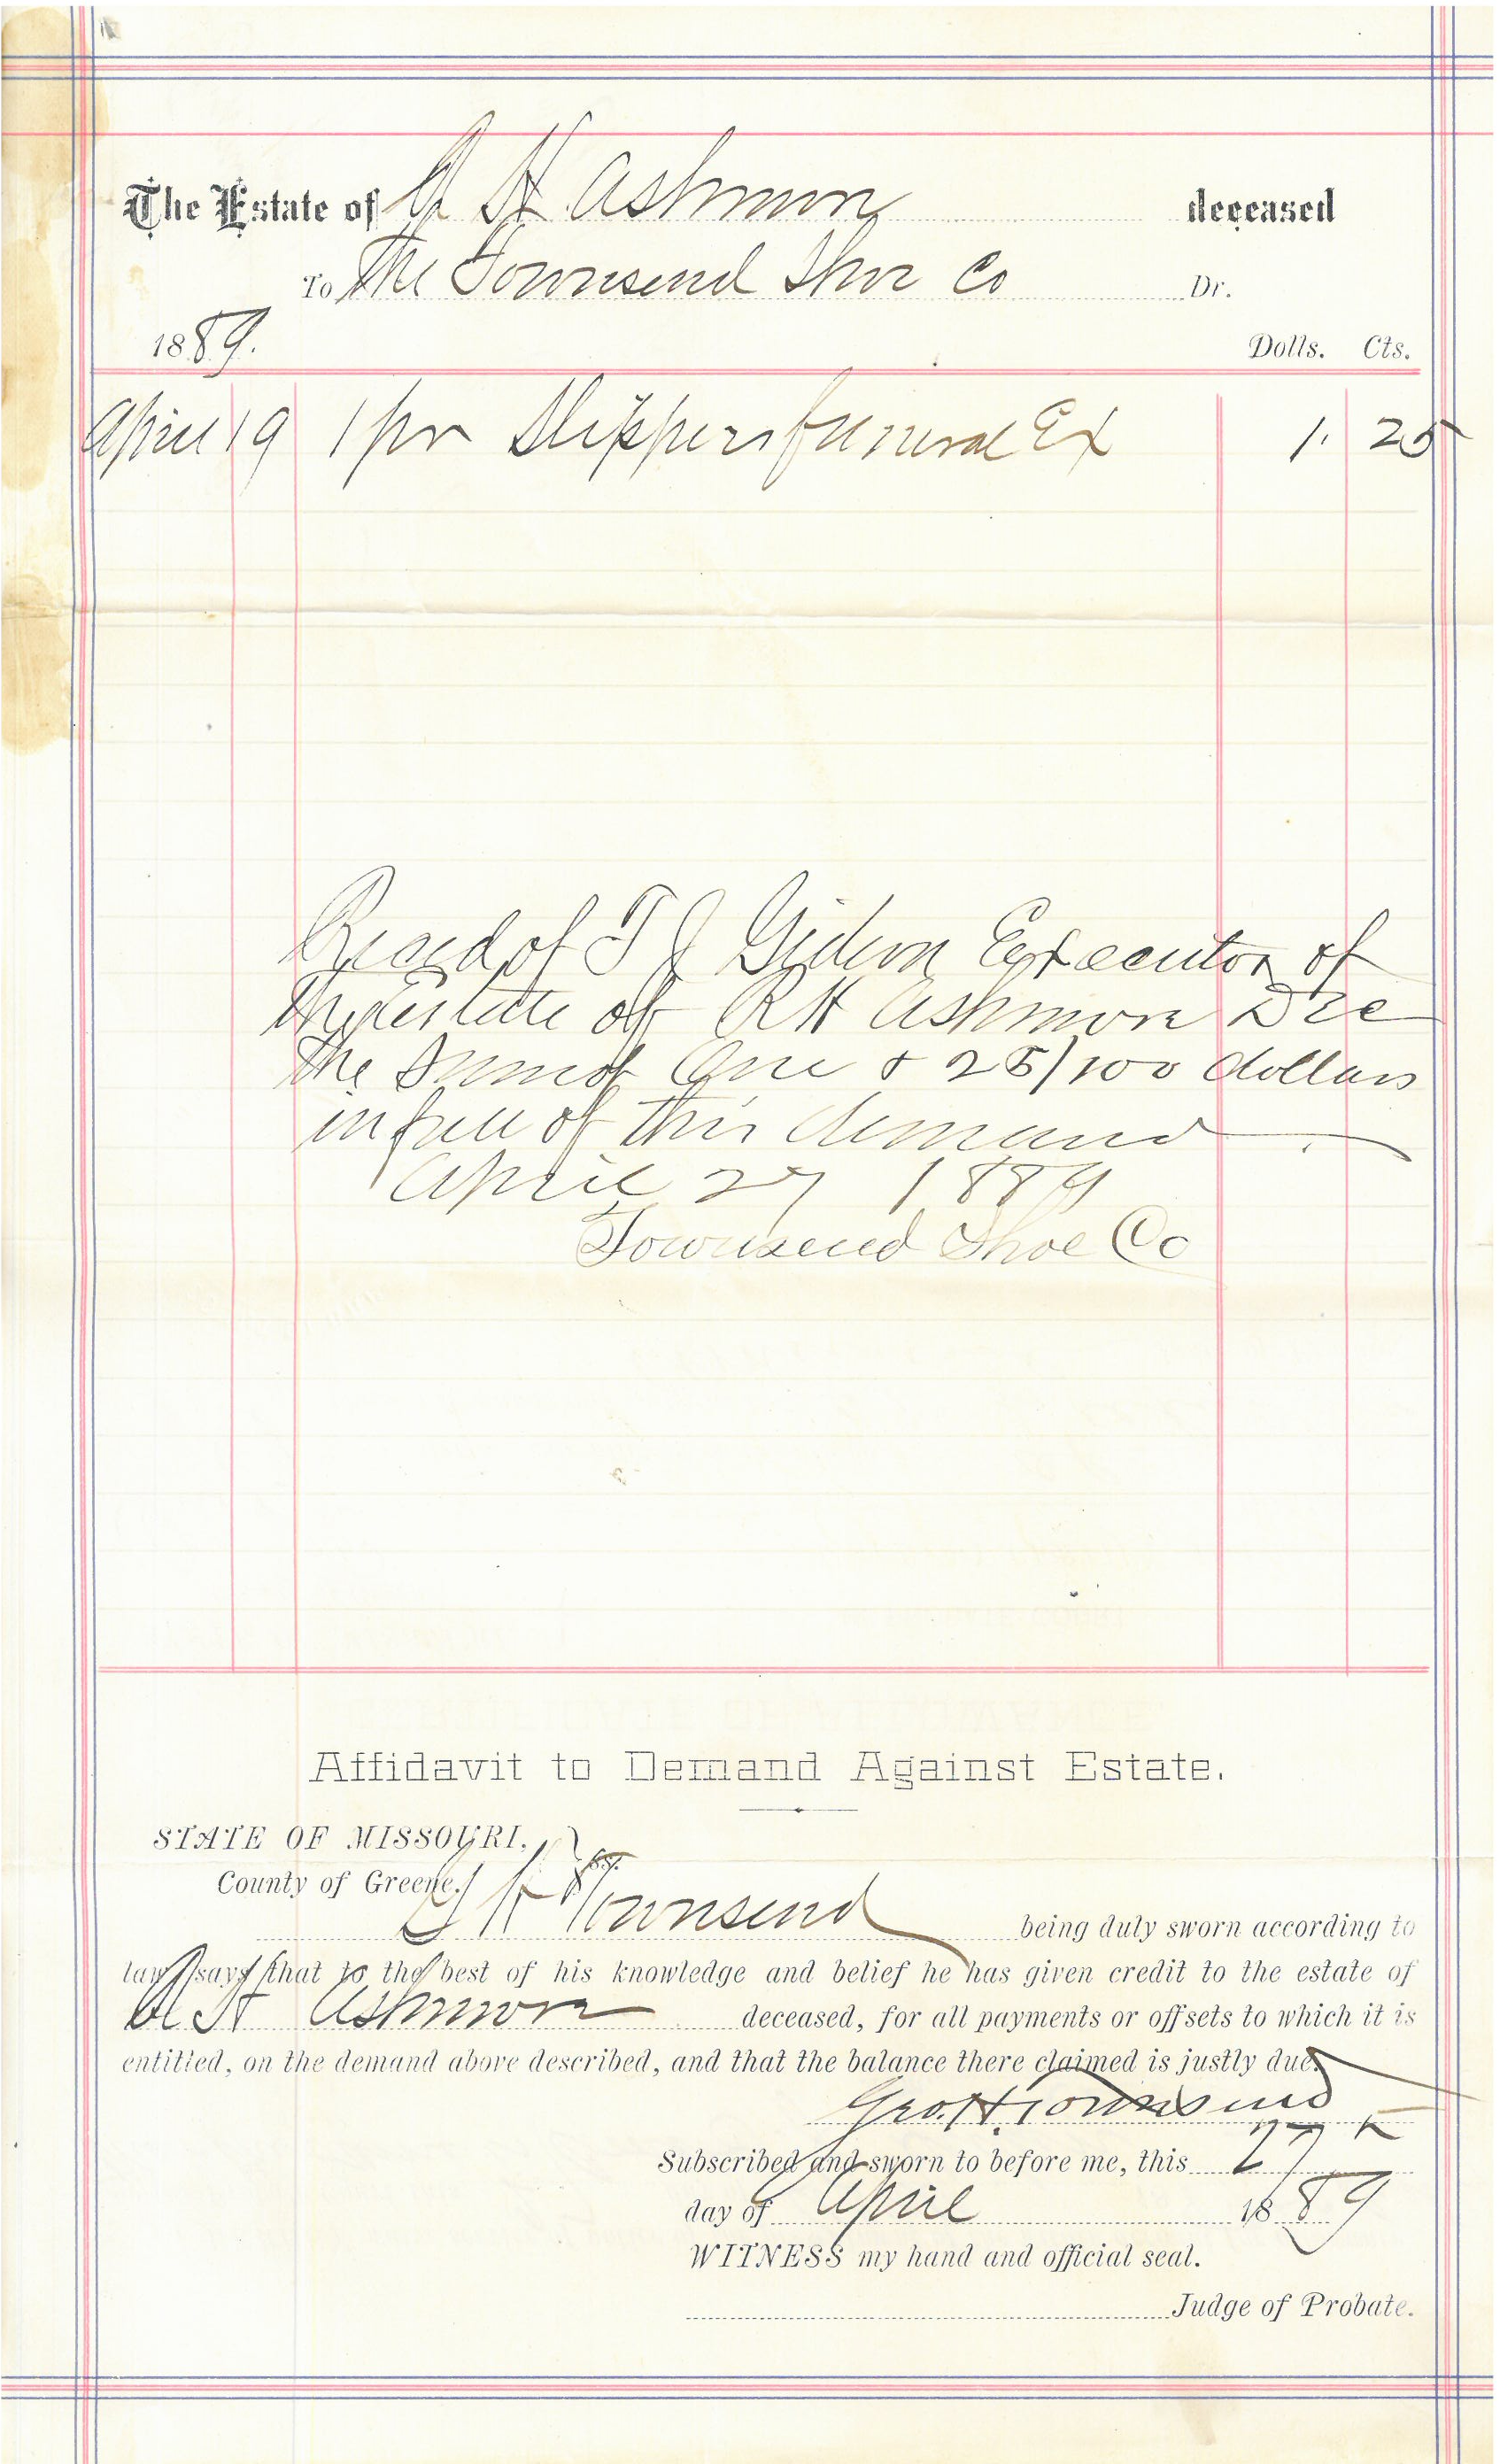 The Estate of A H Ashmore deceased
To The Townsend Shoe Co Dr.
1889. Dolls. Cts.
April 19 1 pr Slippers funeral Ex 1. 25
Recd of T J Gideon Executor of
the estate of A H Ashmore Dec
the Sum of One & 25/100 dollars
in full of this demand
April 27 1889
Townsend Shoe Co
Affidavit to Demand Against Estate.
STATE OF MISSOURI, } ss.
County of Greene.
G H Townsend being duly sworn according to
law, says that to the best of his knowledge and belief he has given credit to the estate of
A H Ashmore deceased, for all payments or offsets to which it is
entitled, on the demand above described, and that the balance there claimed is justly due.
Geo. H. Townsend
Subscribed and sworn to before me, this 27
day of April 1889
WITNESS my hand and official seal.
Judge of Probate.